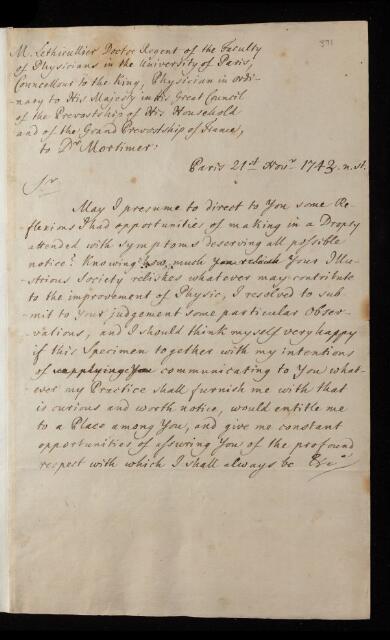 371
M. Lethieullier Doctor Regent of the Faculty
of Physicians in the University of Paris,
Councellour to the King, Physician in ordi-
-nary to His Majesty in His Great Council
of the Prevostship of His Household
and of the Grand Prevostship of France,
to Dr Mortimer:
Paris 21st Novr 1743. n. st.
Sr.
May I presume to direct to You some Re-
flexions I had opportunities of making in a Dropsy
attended with symptoms deserving all possible
notice? Knowing how much Your Illu-
-strious Society relishes whatever may contribute
to the improvement of Physic, I resolved to sub-
-mit to Your judgement some particular Obser-
-vations, and I should think myself very happy
if this Specimen together with my intentions
of communicating to You what-
ever my Practice shall furnish me with that
is curious and worth notice, would entitle me
to a Place among You, and give me constant
opportunities of assuring You of the profound
respect with which I shall always be &c